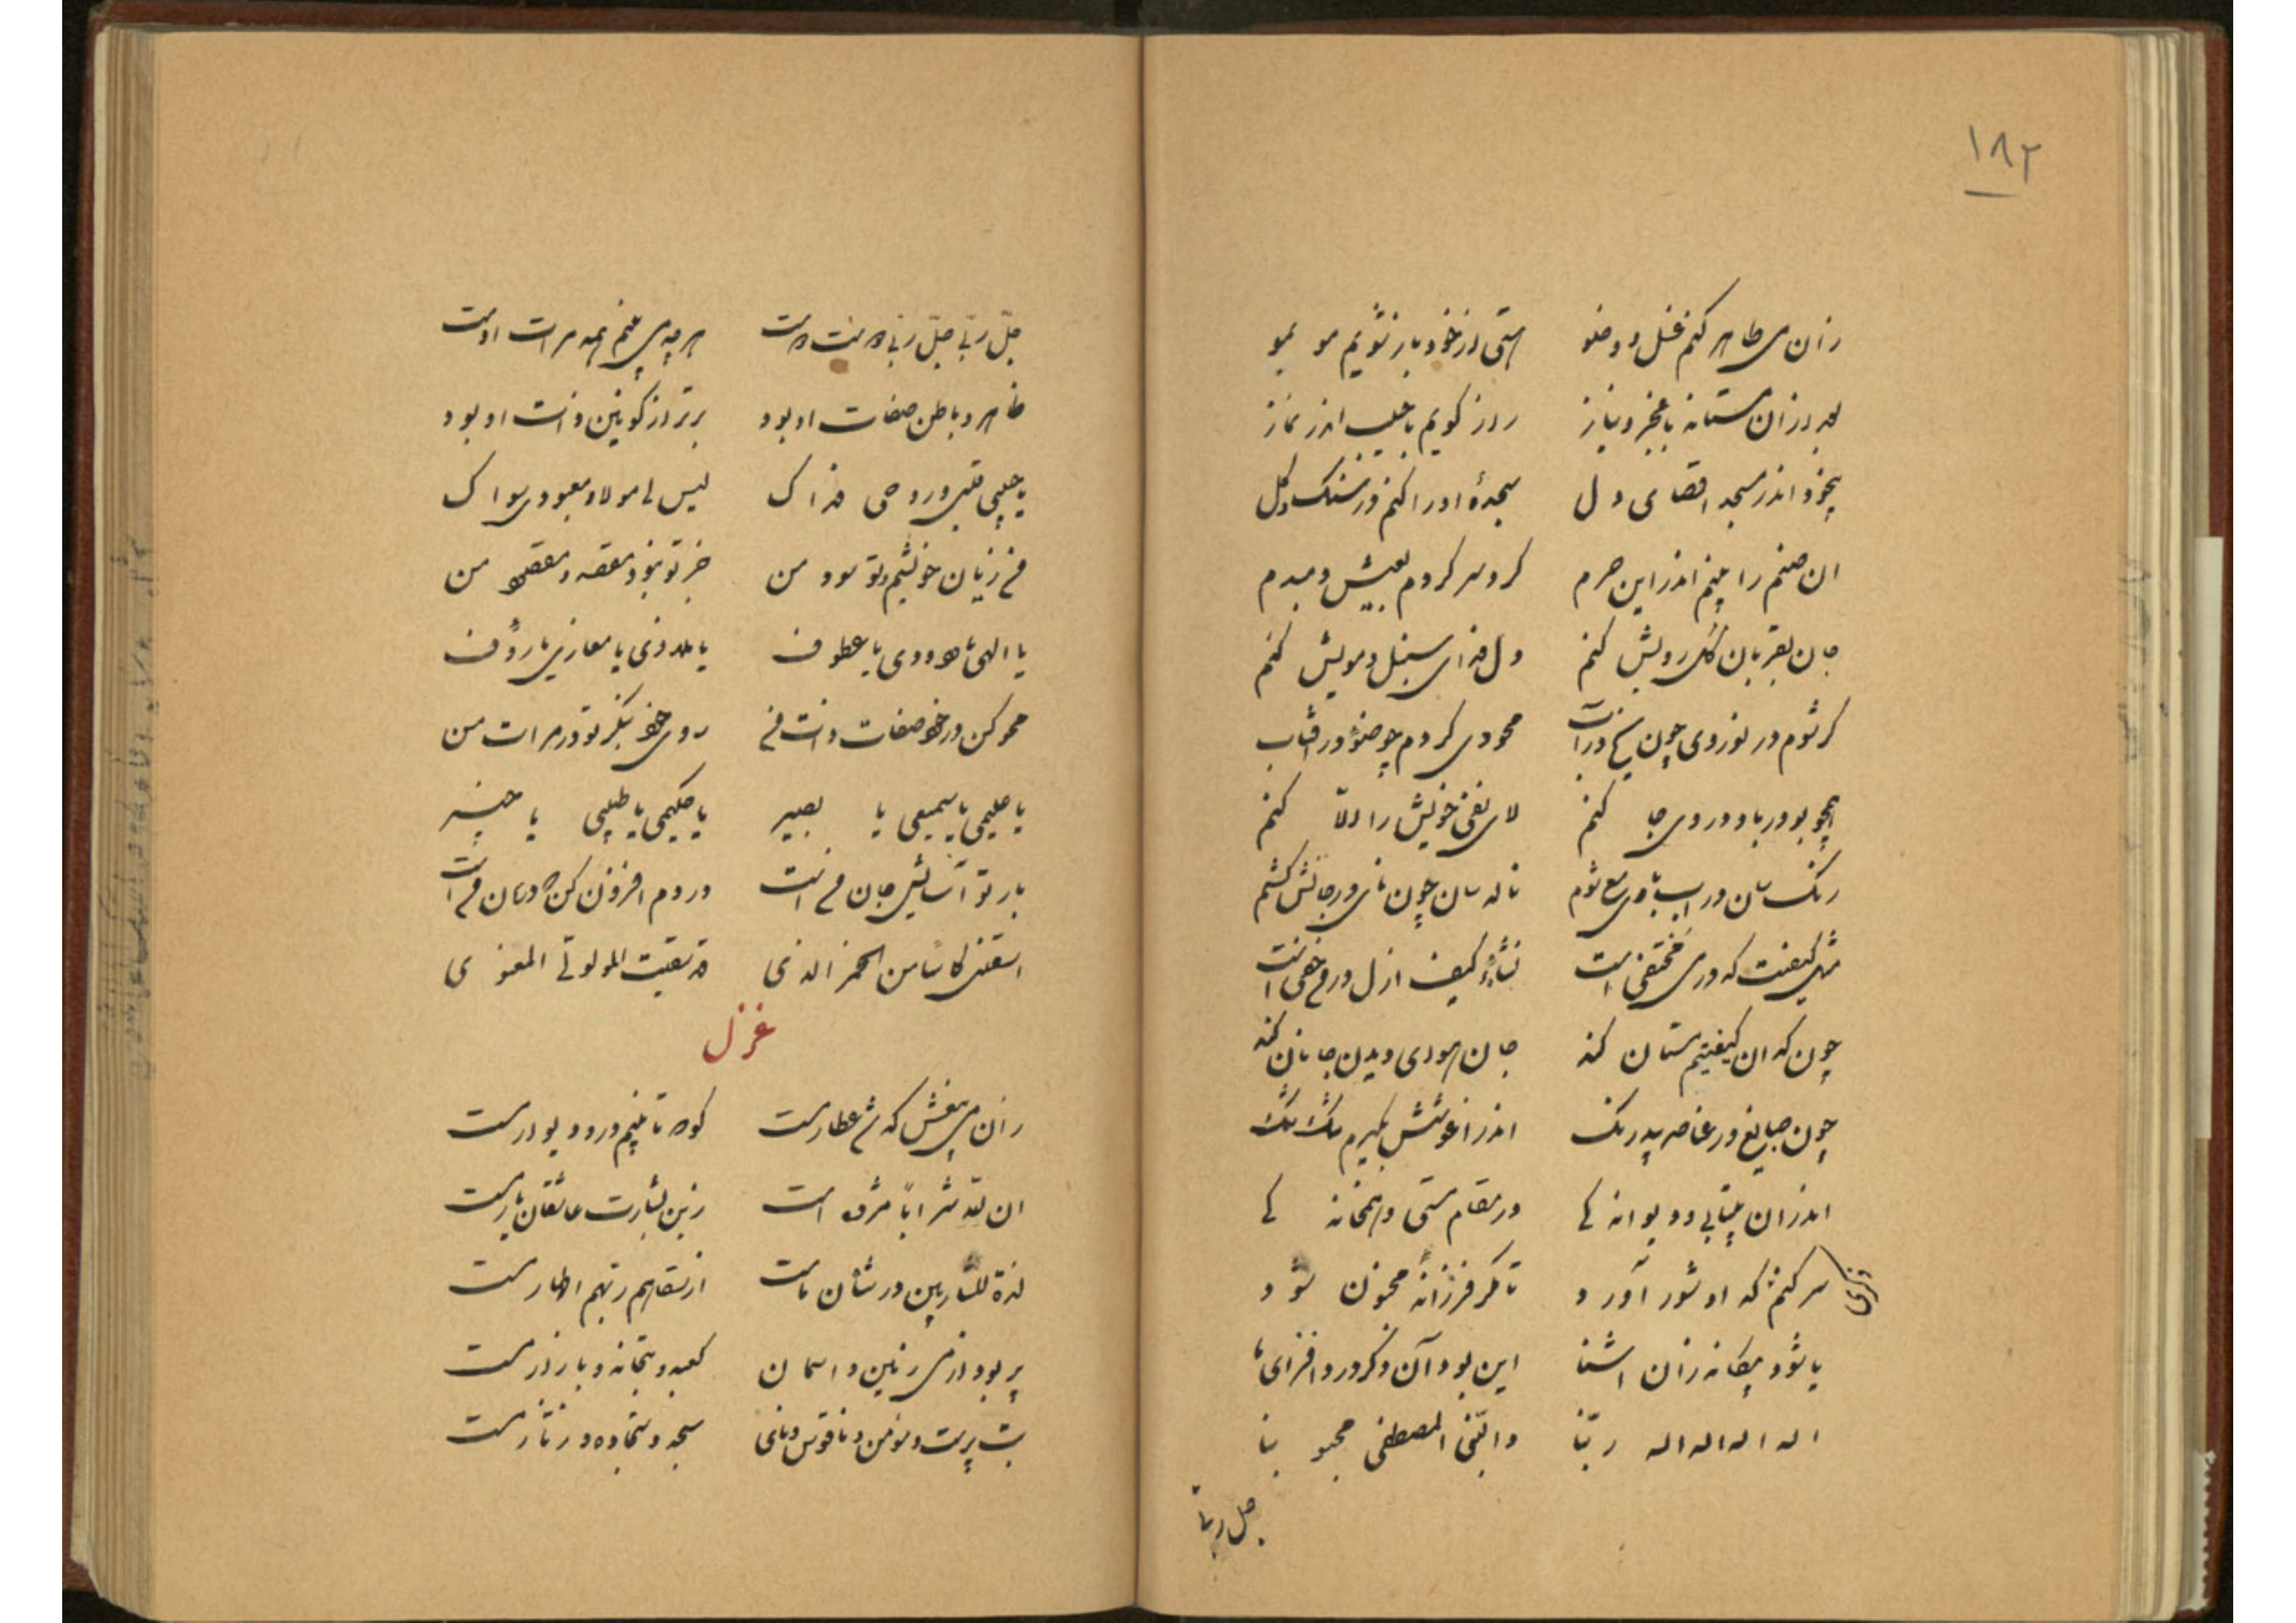 ۱۸۲
زان می طاهر کنم غسل و وضو هستی از خود بازشویم مو بمو
بعد ازان مستانه با عجز و نیاز راز گویم با حبیب اندر نماز
بیخود اندر مسجد اقصای دل سجدهٔ او را کنم در سنگ و گل
ان صنم را بینم اندر این حرم گرد سر گردم بعیش و مبدم
جان بقربان گل رویش کنم دل فدای سنبل و مویش کنم
گر شوم در نور وی چون یخ در آب محو وی گردم چو ضو در افتاب
همچو بو در باد در وی جا کنم لای نفی خویش را الّا کنم
رنگ سان در اب با وی مع شوم ناله سان چون نای در جانش کشم
مثل کیفیت که در می مختفی است نشاهٔ کیف ازل در من خفی است
چون که ان کیفیتم مستان کند جان هوای دیدن جانان کند
چون صبایغ در عناصر بیدرنگ اندر اغوشش بگیرم تنگ تنگ
اندران بیتابی و دیوانه کی در مقام مستی و همخانه کی
سر کنم ذکری که او شور آورد تا مگر فرزانه مجنون شود
یا شود بیگانه زان اشنا این بود آن ذکر درد افزای ما
اله اله اله اله ربّنا والنّبی المصطفی محبوبنا
جل ربنا
جلّ ربّی جلّ ربّی ذو صفت هر چه می بینم همه مرات اوست
ظاهر و باطن صفات او بود برتر از کونین ذات او بود
یا حبیبی قلبی و روحی فداک لیس لی مولا و معبودی سواک
من زیان خویشم و تو سود من جز تو نبود مقصد و مقصود من
یا الهی یا ودودی یا عطوف یا ملاذی یا معاذی یا رؤف
محو کن در خود صفات و ذات من روی خود بنگر تو در مرات من
یا حلیمی یا سمیعی یا بصیر یا حکیمی یا طبیبی یا خبیر
یار تو آسایش جان من است دردم افزون کن که درمان من است
اسقنی کاسًا من الخمر الذی قد سقیت المولوی المعنوی
غزل
زان می بیغش که شیخ عطار مست کوه تا بینیم در و دیوار مست
ان لله شرابًا مژده است زین بشارت عاشقان یار مست
لذة للشاربین در شان ماست از سقاهم ربهم اطهار مست
پر بود از می زمین و اسمان کعبه و بتخانه و بازار مست
بت پرست و مومن و ناقوس و نای سجد و سجاده و زنار مست